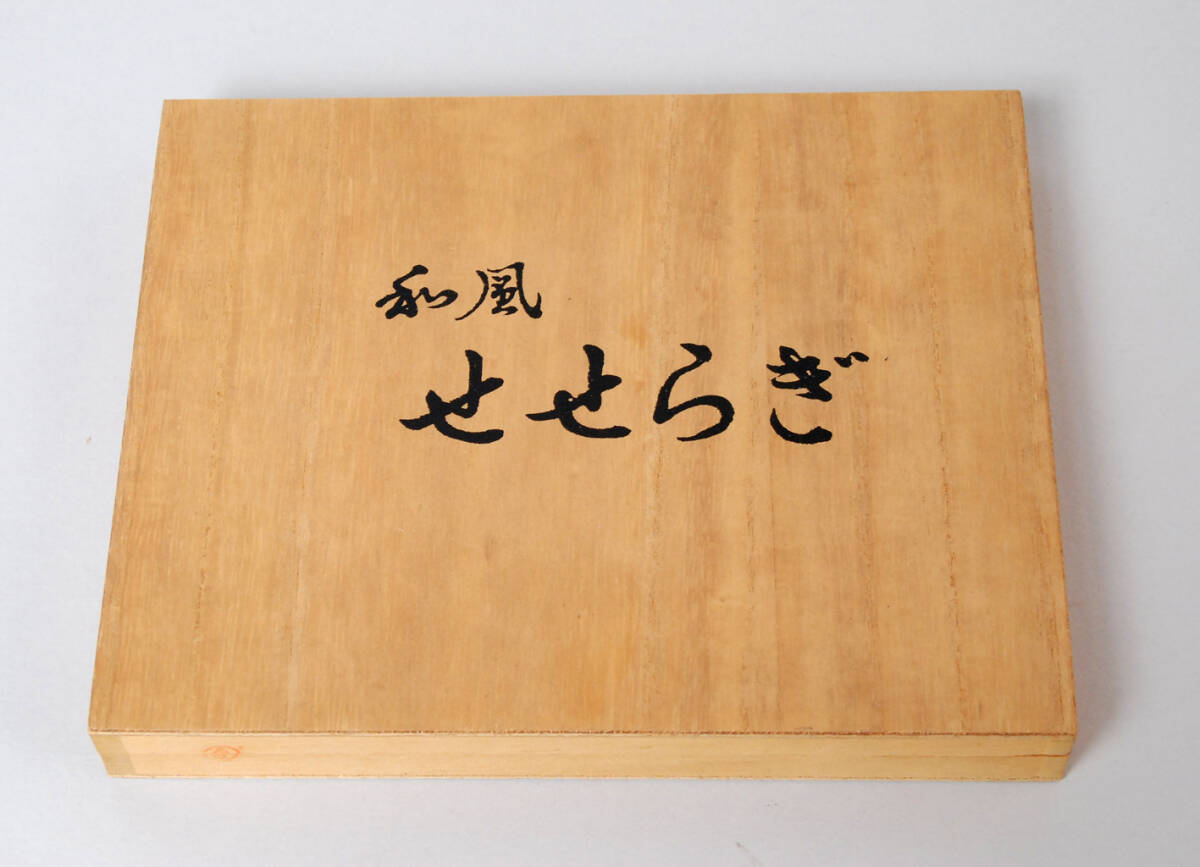 和風
せせらぎ